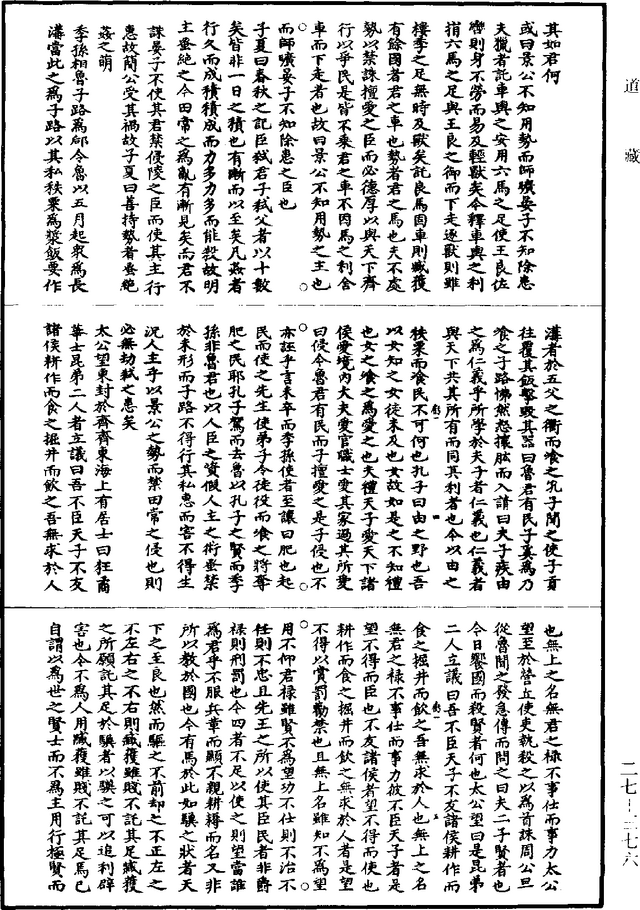 道藏
其如君何
或曰景公不知用勢而師曠晏子不知除患
夫獵者託車輿之安用六馬之足使王良佐
轡則身不勞而易及輕獸矣今釋車輿之利
捐六馬之足與王良之御而下走逐獸則雖
樓季之足無時及獸矣託良馬固車則臧獲
有餘國者君之車也勢者君之馬也夫不處
勢以禁誅擅愛之臣而必德厚以與天下齊
行以爭民是皆不乘君之車不因馬之利舍
車而下走者也故曰景公不知用勢之主也
而師曠晏子不知除患之臣也
子夏曰春秋之記臣弒君子弒父者以十數
矣皆非一日之積也有漸而以至矣凡姦者
行久而成積積成而力多力多而能殺故明
主蚤絕之今田常之為亂有漸見矣而君不
誅晏子不使其君禁侵陵之臣而使其主行
惠故簡公受其禍故子夏曰善持勢者蚤絕
姦之萌
季孫相魯子路為郈令魯以五月起眾為長
溝當此之為子路以其私秩粟為漿飯要作
溝者於五父之衢而飡之孔子聞之使子貢
往覆其飯擊毀其器曰魯君有民子奚為乃
飡之子路怫然怒攘肱而入請曰夫子疾由
之為仁義乎所學於夫子者仁義也仁義者
與天下共其所有而同其利者也今以由之
秩粟而飡民不可何也孔子曰由之野也吾
以女知之女徒未及也女故如是之不知禮
也女之飡之為愛之也夫禮天子愛天下諸
侯愛境內大夫愛官職士愛其家過其所愛
曰侵今魯君有民而子擅愛之是子侵也不
亦誣乎言未卒而季孫使者至讓曰肥也起
民而使之先生使弟子令徒役而飡之將奪
肥之民耶孔子駕而去魯以孔子之賢而季
孫非魯君也以人臣之資假人主之術蚤禁
於未形而子路不得行其私惠而害不得生
況人主乎以景公之勢而禁田常之侵也則
必無劫弒之患矣
太公望東封於齊齊東海上有居士曰狂矞
華士昆弟二人者立議曰吾不臣天子不友
諸侯耕作而食之掘井而飲之吾無求於人
也無上之名無君之祿不事仕而事力太公
望至於營丘使吏執殺之以為首誅周公旦
從魯聞之發急傳而問之曰夫二子賢者也
今日饗國而殺賢者何也太公望曰是昆弟
二人立議曰吾不臣天子不友諸侯耕作而
食之掘井而飲之吾無求於人也無上之名
無君之祿不事仕而事力彼不臣天子者是
望不得而臣也不友諸侯者望不得而使也
耕作而食之掘井而飲之無求於人者是望
不得以賞罰勸禁也且無上名雖知不為望
用不仰君祿雖賢不為望功不仕則不治不
任則不忠且先王之所以使其臣民者非爵
祿則刑罰也今四者不足以使之則望當誰
為君乎不服兵革而顯不親耕耨而名又非
所以教於國也今有馬於此如驥之狀者天
下之至良也然而驅之不前却之不止左之
不左右之不右則臧獲雖賤不託其足臧獲
之所願託其足於驥者以驥之可以追利辟
害也今不為人用臧獲雖賤不託其足焉已
自謂以為世之賢士而不為主用行極賢而
二七-三七六